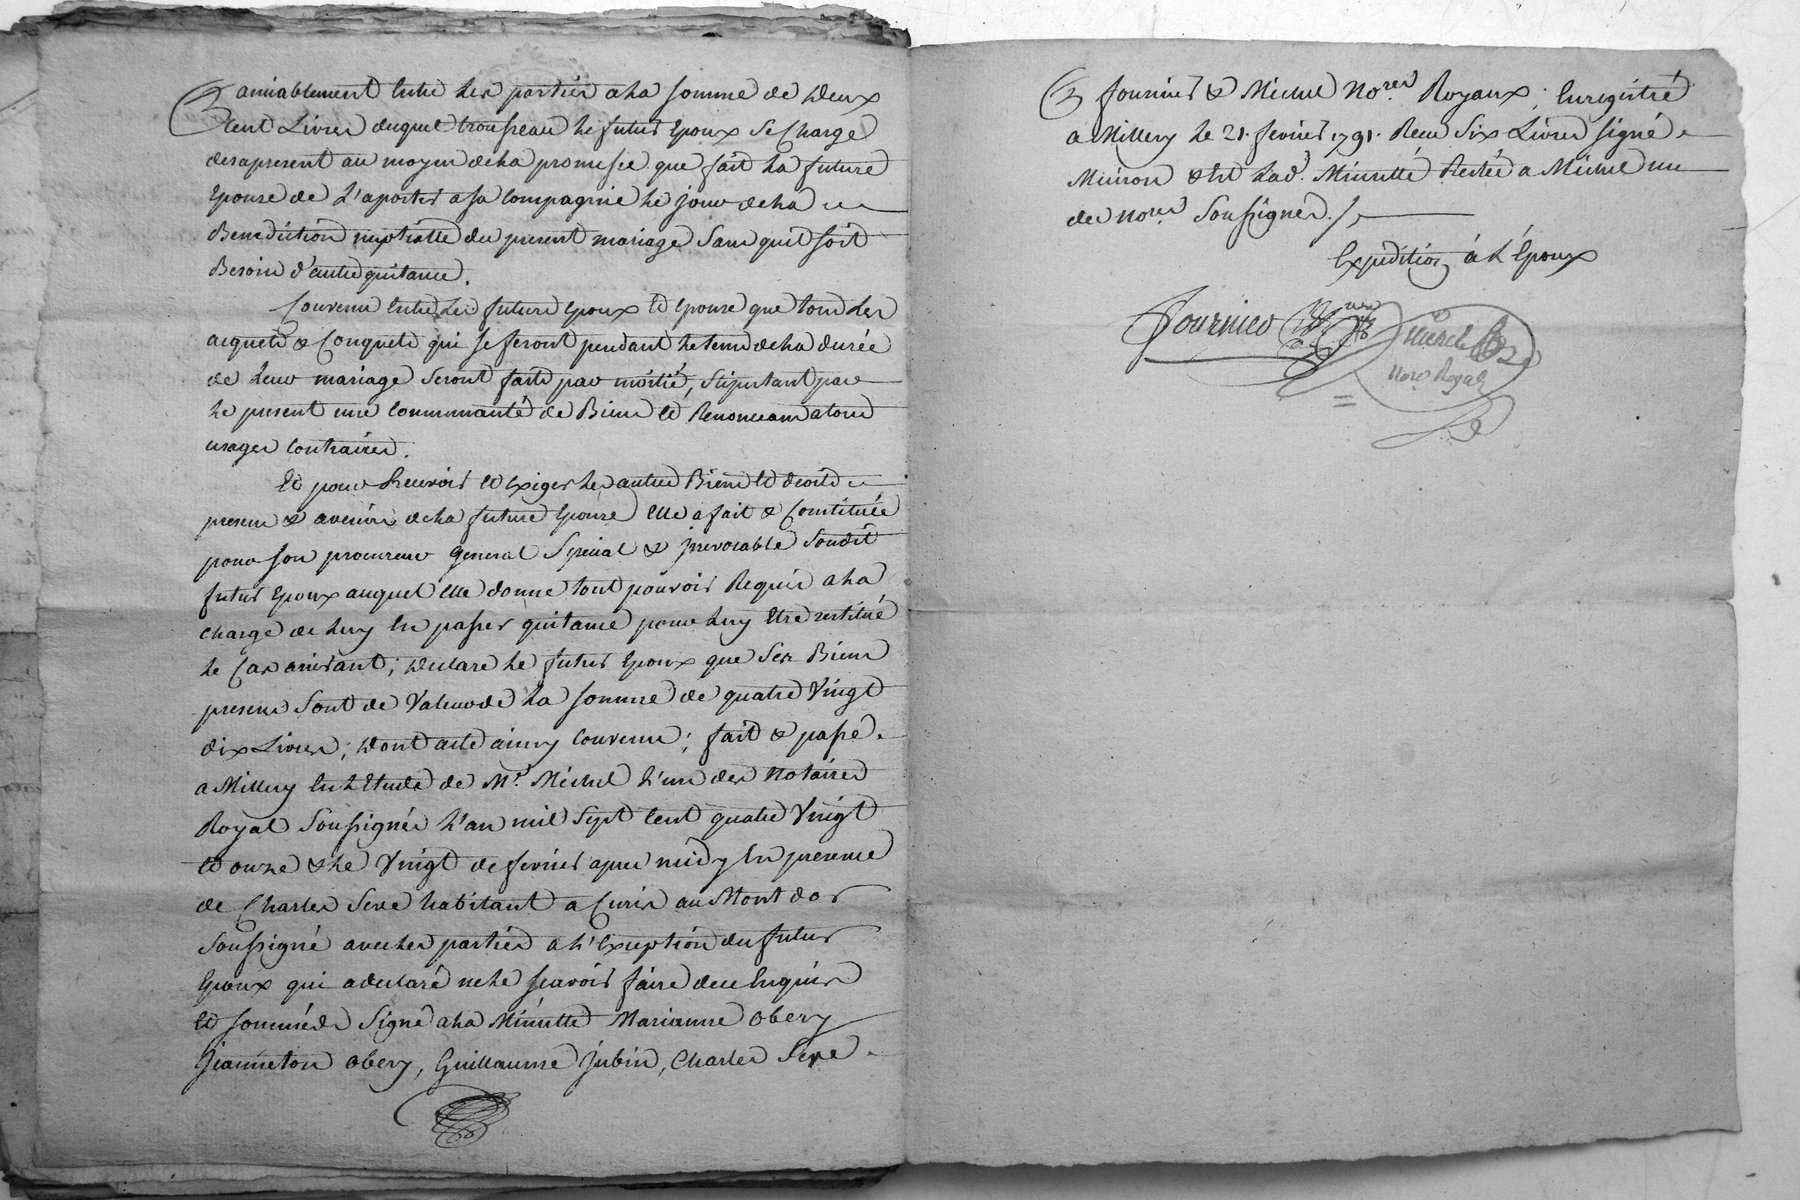 amiablement Entre Les parties a La somme de Deux
Cent Livres duquel trousseau le futur Epoux Se Charge
desapresent au moyen de La promesse que fait La future
Epouse de L'aporter a sa Compagnie Le jour de La
Benediction nuptialle du present mariage Sans quil soit
Besoin d'autre quitance.
Convenu Entre Les futurs Epoux Et Epouse que tous Les
acquets & Conquets qui se feront pendant Le tems de La durée
de Leur mariage Seront faits par moitié, Stipulant par
Le present une Communauté de Biens Et Renonceant a tous
usages Contraires.
Et pour Recevoir Et Exiger Les autres Biens Et droits
presens & avenirs de La future Epouse Elle a fait & Constituée
pour son procureur General Special & jrrevocable Sondit
futur Epoux auquel Elle donne tout pouvoir Requis a La
Charge de Luy En passer quitance pour Luy Etre restitué
Le Cas arrivant; Declare Le futur Epoux que Ses Biens
presens Sont de Valeur de La somme de quatre Vingt
dix Livres; Dont acte ainsy Convenu; fait & passé
a Millery En L'Etude de Mr. Michel L'un des Notaires
Royal Soussignés L'an mil Sept Cent quatre Vingt
Et onze & Le Vingt de fevrier apres midy En presence
de Charles Seve habitant a Curis au Mont dor
Soussigné avec Les parties a L'Exception du futur
Epoux qui a declaré ne Le scavoir faire de ce Enquis
Et sommé de Signé a La Minutte Marianne Obery
Jeanneton Obery, Guillaume Jubin, Charles Seve
fournier & Michel Nores. Royaux; Enregistré
a Millery Le 21. fevrier 1791. Reçu Six Livres signé
Muiron & Et Lad. Minutte Restée a Michel un
des nores Soussignés.
Expedition à L'Epoux
Fournier
Michel
Nore Royal